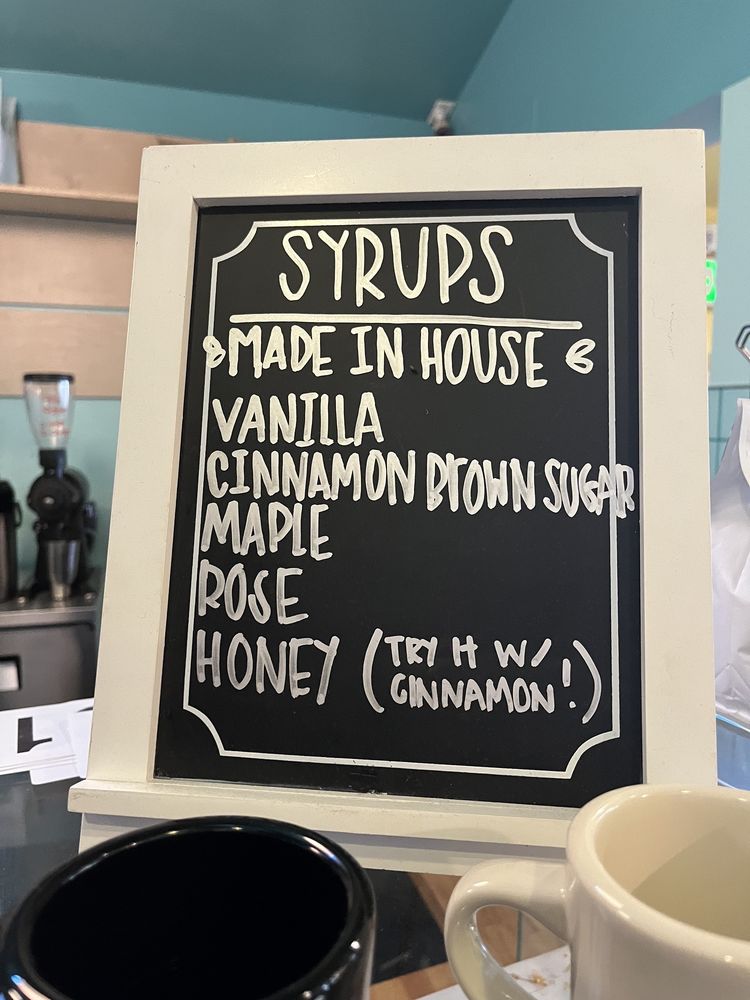 SYRUPS
MADE IN HOUSE
VANILLA
CINNAMON BROWN SUGAR
MAPLE
ROSE
HONEY (TRY IT W/
CINNAMON!)